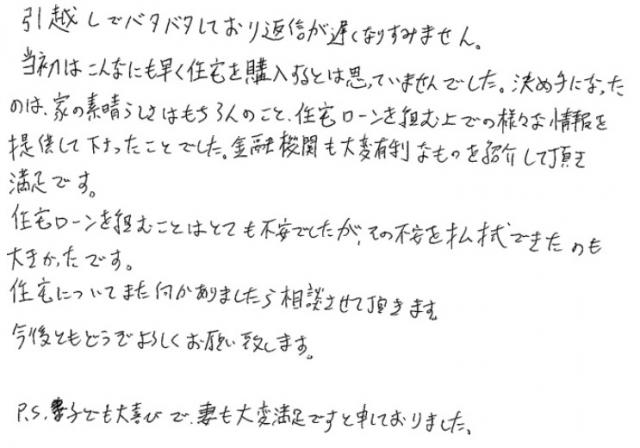 引越しでバタバタしており返信が遅くなりすみません。
当初はこんなにも早く住宅を購入するとは思っていませんでした。決め手になった
のは、家の素晴らしさはもちろんのこと、住宅ローンを組む上での様々な情報を
提供して下さったことでした。金融機関も大変有利なものを紹介して頂き
満足です。
住宅ローンを組むことはとても不安でしたが、その不安を払拭できたのも
大きかったです。
住宅についてまた何かありましたら相談させて頂きます
今後ともどうぞよろしくお願い致します。
P.S. 子ども大喜びで、妻も大変満足ですと申しておりました。